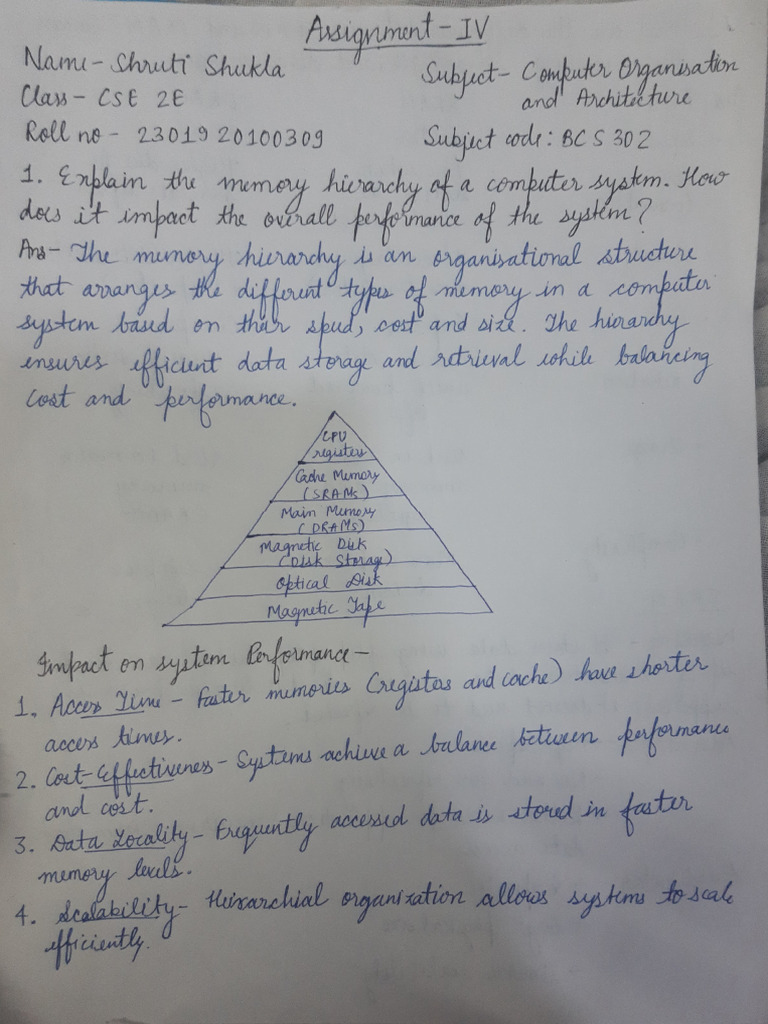 Assignment-IV
Name- Shruti Shukla
Subject- Computer Organisation
and Architecture
Class- CSE 2E
Roll no - 2301920100309
Subject code: BCS302
1. Explain the memory hierarchy of a computer system. How
does it impact the overall performance of the system?
Ans- The memory hierarchy is an organisational structure
that arranges the different types of memory in a computer
system based on their speed, cost and size. The hierarchy
ensures efficient data storage and retrieval while balancing
cost and performance.
CPU
registers
Cache Memory
(SRAMs)
Main Memory
(DRAMs)
Magnetic Disk
(Disk Storage)
Optical Disk
Magnetic Tape
Impact on system Performance-
1. Access Time - Faster memories (registers and cache) have shorter
access times.
2. Cost-Effectiveness- Systems achieve a balance between performance
and cost.
3. Data Locality- Frequently accessed data is stored in faster
memory levels.
4. Scalability- Heirarchial organization allows systems to scale
efficiently.